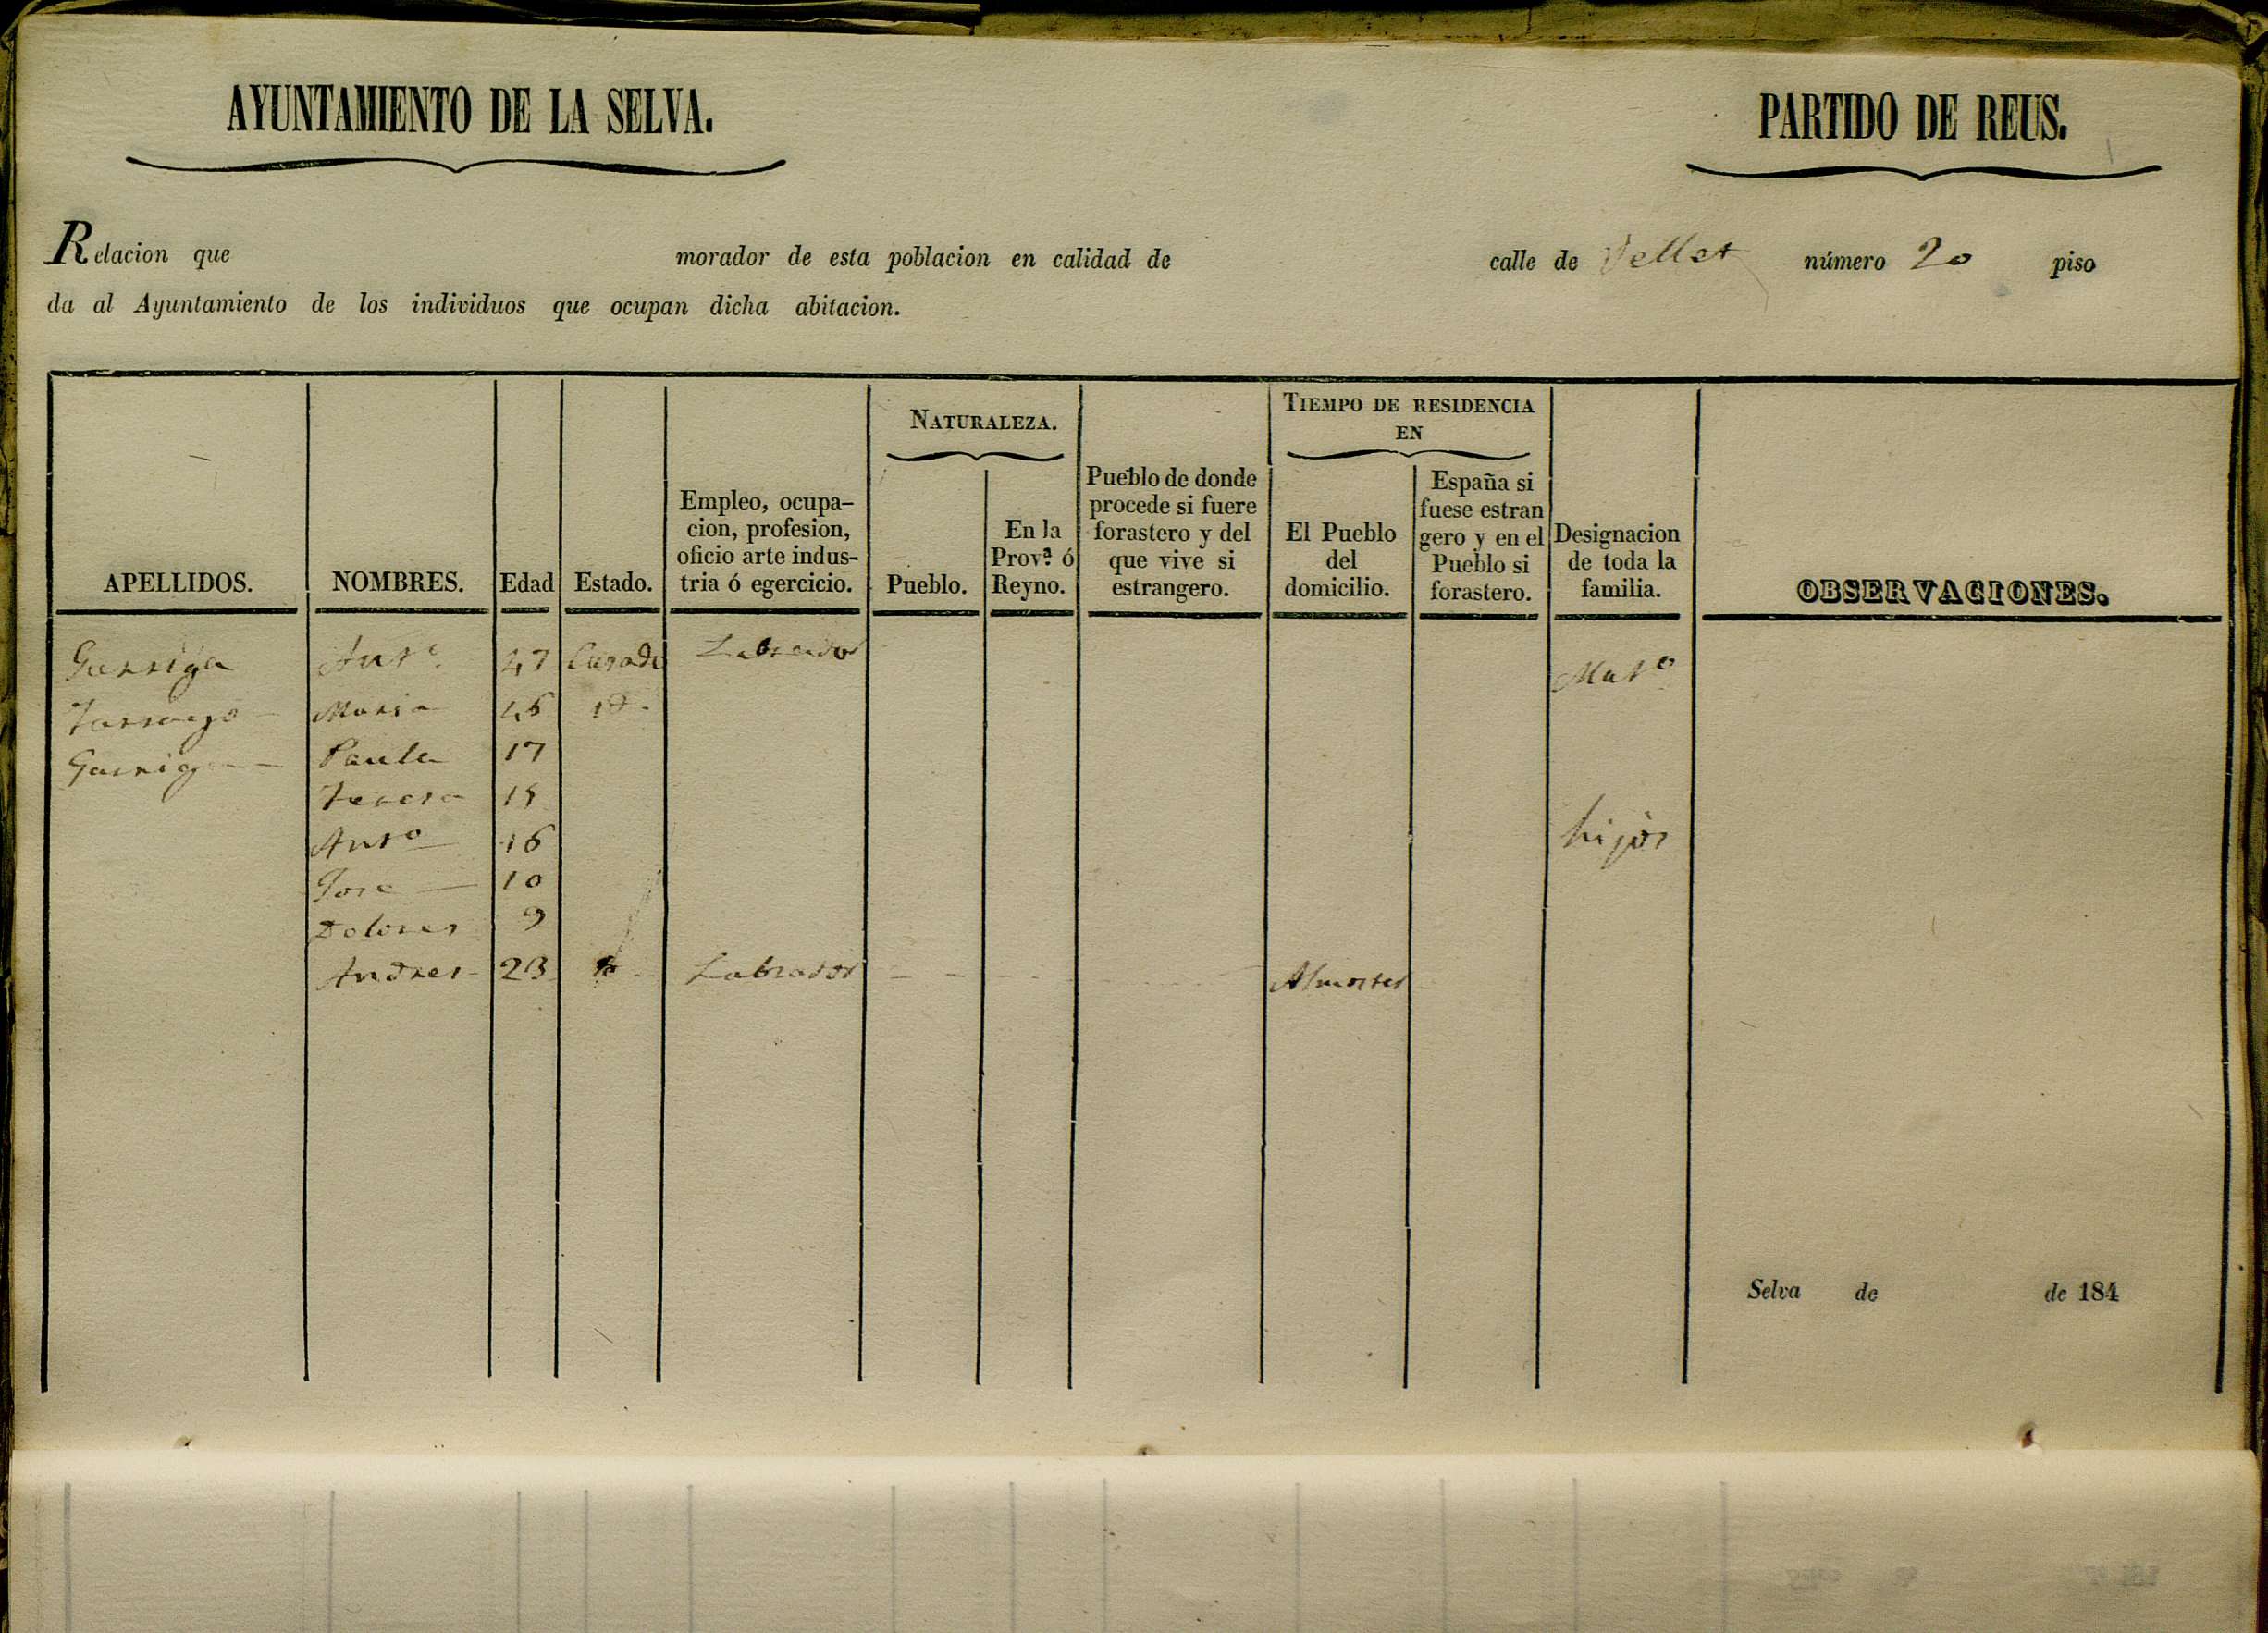 AYUNTAMIENTO DE LA SELVA.
PARTIDO DE REUS.
Relacion que morador de esta poblacion en calidad de calle de Vellet número 20 piso
da al Ayuntamiento de los individuos que ocupan dicha abitacion.
APELLIDOS.
NOMBRES.
Edad
Estado.
Empleo, ocupa-
cion, profesion,
oficio arte indus-
tria ó egercicio.
NATURALEZA.
Pueblo.
En la
Prov.ª ó
Reyno.
Pueblo de donde
procede si fuere
forastero y del
que vive si
estrangero.
TIEMPO DE RESIDENCIA
EN
El Pueblo
del
domicilio.
España si
fuese estran
gero y en el
Pueblo si
forastero.
Designacion
de toda la
familia.
OBSERVACIONES.
Garriga Antº 47 Casado Labrador Matº
Tarrago Maria 46 id.
Garriga Paula 17
Teresa 15
Antº 16
Jose 10
Dolores 9
Andres 23 Labrador Almoster
hijos
Selva de de 184